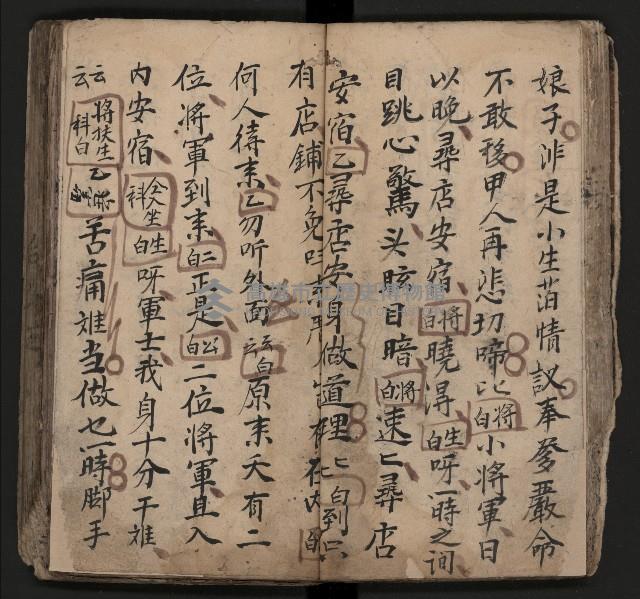 娘子非是小生薄情訳奉爹嚴命
不敢移甲人再悲切啼匕將白小將軍日
以晚尋店安宿將白曉得生白呀一時之间
目跳心驚头眩目暗將白速匕尋店
安宿乙尋店安身做道理匕白到只
有店鋪不免
何人待末乙勿听外面云白原末夭有二
位將軍到末二白正是公白二位將軍且入
内安宿仝人生科生白呀軍士我身十分干难
云云將扶生科白乙苦痛难当做乜一時脚手
高雄市立歷史博物館